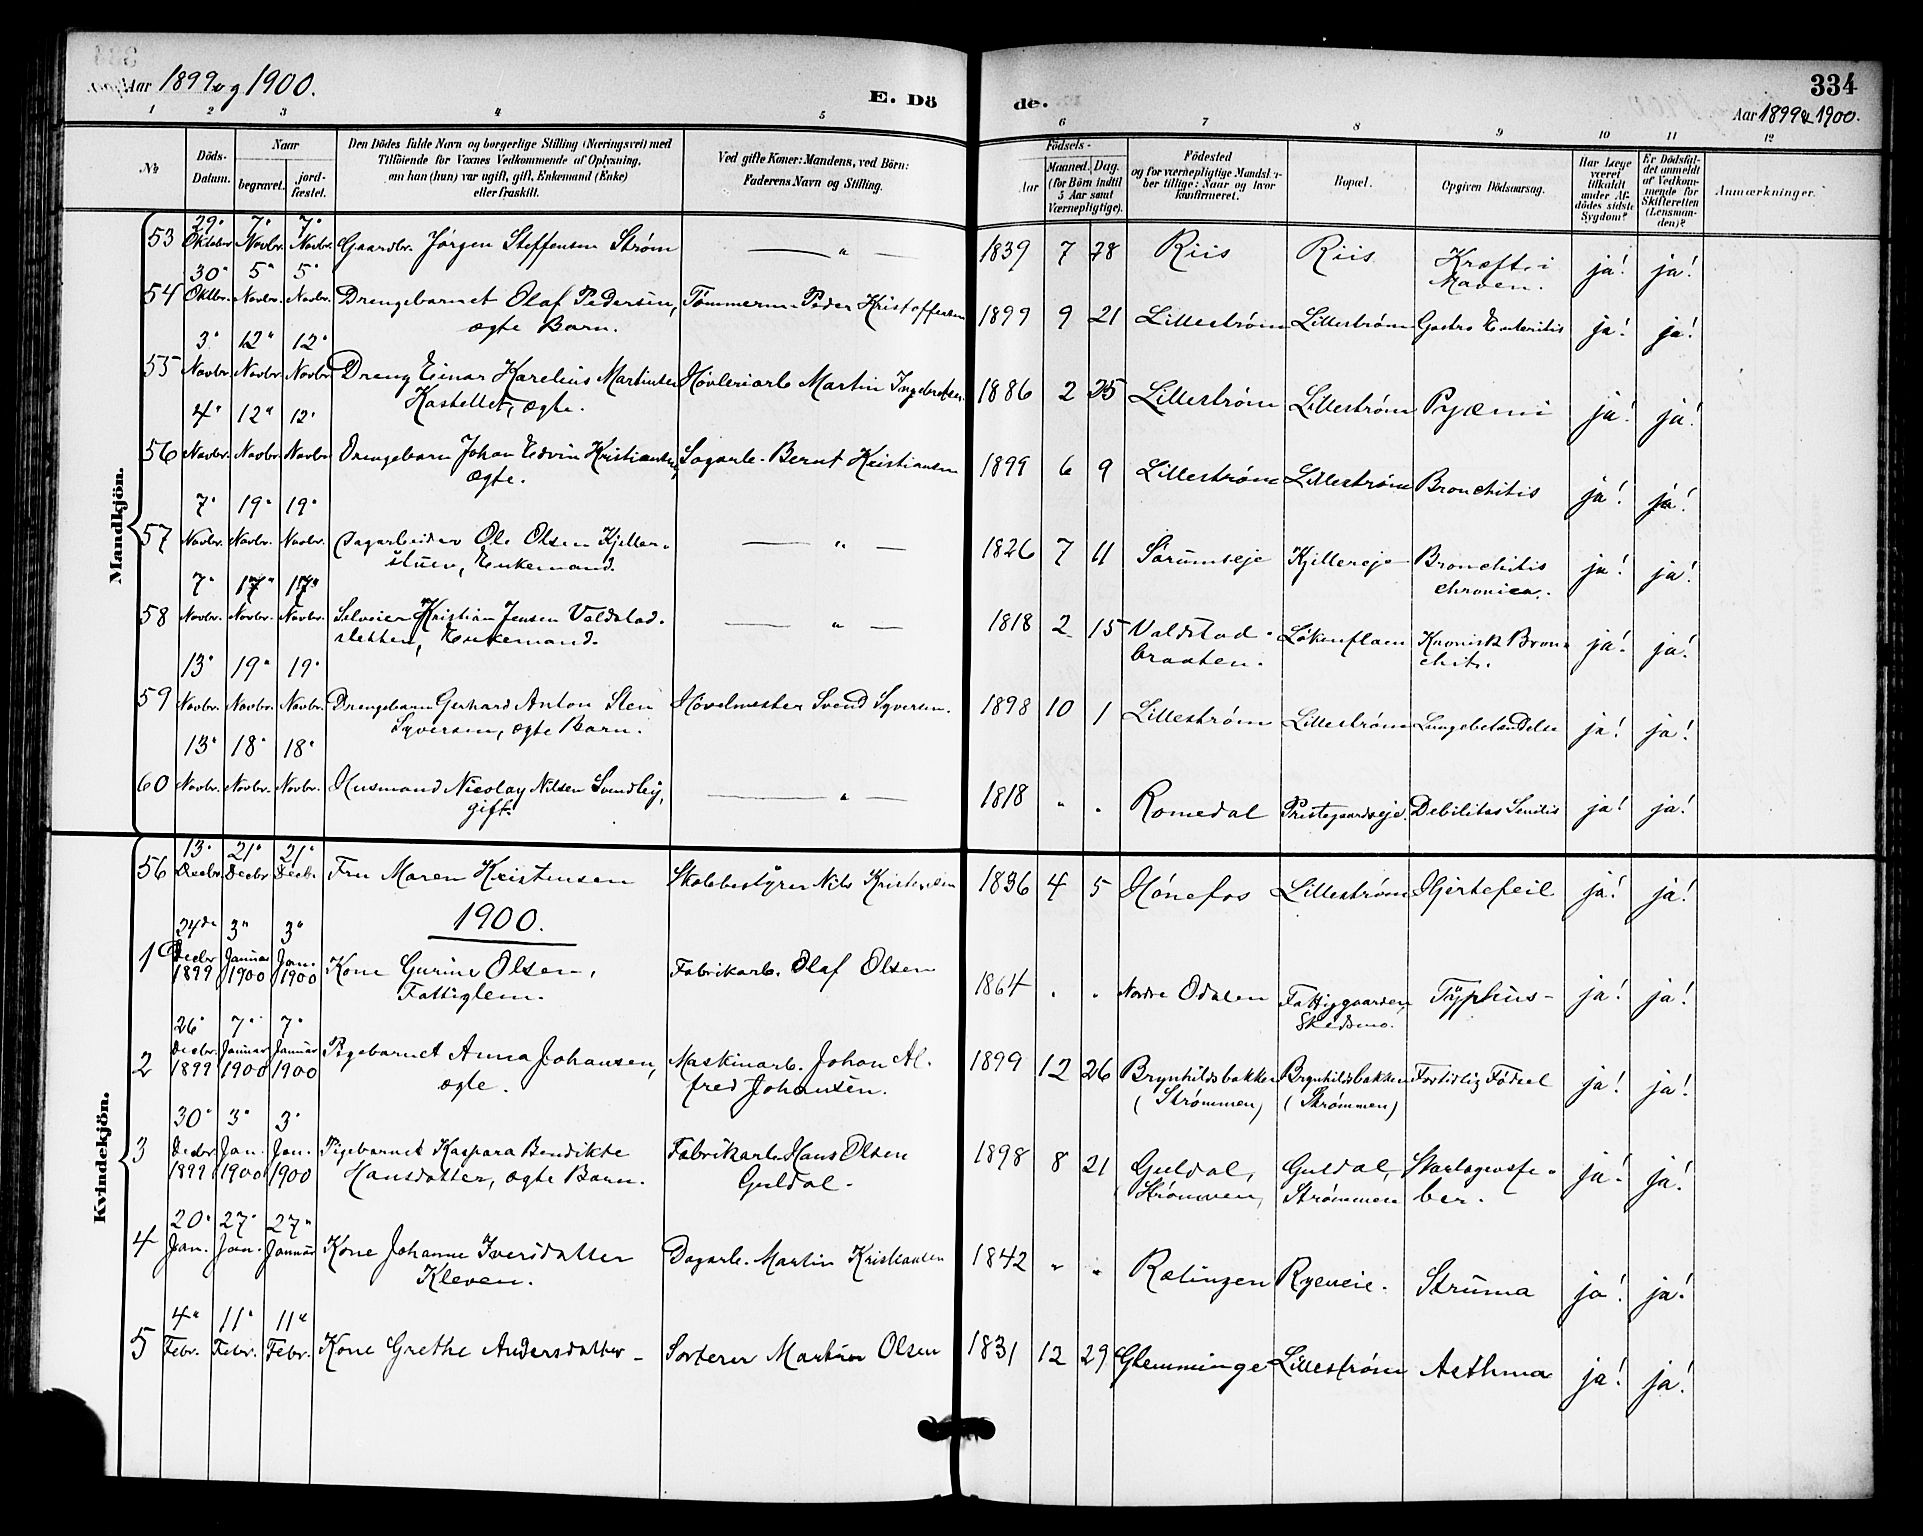 Aar 1899 og 1900.
E. Dö
de.
334
Aar 1899 & 1900.
1 2 3 4 5 6 7 8 9 10 11 12
No
Döds-Datum.
Naar
begravet.
jord-fæstet.
Den Dödes fulde Navn og borgerlige Stilling (Næringsvei) med
Tilföiende for Voxnes Vedkommende af Oplysning,
om han (hun) var ugift, gift, Enkemand (Enke)
eller fraskilt.
Ved gifte Koner: Mandens, ved Börn:
Faderens Navn og Stilling.
Födsels-
Aar
Maaned.
Dag.
(for Börn indtil
5 Aar samt
Værnepligtige).
Födested
og for værnepligtige Mandskaber tillige: Naar og hvor
konfirmeret.
Bopæl.
Opgiven Dödsaarsag.
Har Læge
været
tilkaldt
under Afdödes sidste
Sygdom?
Er Dödsfaldet anmeldt
af Vedkommende for
Skifteretten
(Lensmanden)?
Anmærkninger.
Mandkjön.
53 29. Oktober 7. Novbr. 7. Novbr. Gaardbr. Jørgen Steffensen Strøm — " — 1839 7 28 Riis Riis Kræft i Maven. ja! ja!
54 30. Oktbr. 5. Novbr. 5. Novbr. Drengebarnet Olaf Pedersen, Tømmerm. Peder Kristoffersen 1899 9 21 Lillestrøm Lillestrøm Gastro Enteritis ja! ja!
ægte Barn.
55 3. Novbr. 12. Novbr. 12. Novbr. Dreng Einar Karelius Martinsen Høvleriarb. Martin 1886 2 25 Lillestrøm Lillestrøm Pyæmi ja! ja!
Kastellet, ægte.
56 4. Novbr. 12. Novbr. 12. Novbr. Drengebarn Johan Edvin Kristiansen, Sagarb. Bernt Kristiansen 1899 6 9 Lillestrøm Lillestrøm Bronchitis ja! ja!
ægte.
57 7. Novbr. 19. Novbr. 19. Novbr. Dagarbeider Ole Olsen Kjeller- — " — 1826 7 11 Sørumseje Kjellereje Bronchitis chronica. ja! ja!
stuen, Enkemand.
58 7. Novbr. 17. Novbr. 17. Novbr. Selveier Kristian Jensen Valdstad- — " — 1818 2 15 Valdstad- braaten. Løkenflaen Kronisk Bron- chit. ja! ja!
sletten, Enkemand.
59 13. Novbr. 19. Novbr. 19. Novbr. Drengebarn Gerhard Anton Sten Høvelmester Svend Syversen. 1898 10 1 Lillestrøm Lillestrøm Lungebetændelse ja! ja!
Syversen, ægte Barn.
60 13. Novbr. 18. Novbr. 18. Novbr. Husmand Nicolay Nilsen Svendby, — " — 1818 " " Romedal Prestegaardseje. Debilitas Senilis ja! ja!
gift.
Kvindekjön.
56 13. Decbr 21. Decbr 21. Decbr. Fru Maren Kristensen Skolebestyrer Nils Kristensen 1836 4 5 Hønefos Lillestrøm Hjertefeil ja! ja!
1900.
1 24de Decbr 1899 3. Januar 1900 3. Jan. 1900 Kone Gurine Olsen, Fabrikarb. Olaf Olsen 1864 " " Nordre Odalen Fattiggaarden, Skedsmo. Typhus- ja! ja!
Fattiglem.
2 26. Decbr 1899 7. Januar 1900 7. Januar 1900 Pigebarnet Anna Johansen, Maskinarb. Johan Al- 1899 12 26 Brynhildsbakken (Strømmen) Brynhildsbakken (Strømmen) Fortidlig Fødsel ja! ja!
ægte. fred Johansen.
3 30. Decbr 1899 3. Jan. 1900 3. Jan. 1900 Pigebarnet Kaspara Bendikte Fabrikarb. Hans Olsen 1898 8 21 Guldal, Strømmen, Guldal, Strømmen Skarlagensfe- ber. ja! ja!
Hansdatter, ægte Barn. Guldal.
4 20. Jan. 27. Jan. 27. Januar Kone Johanne Iversdatter Dagarb. Martin Kristiansen 1842 " " Rælingen Ryeneie. Struma ja! ja!
Kleven.
5 4. Febr. 11. Febr. 11. Febr. Kone Grethe Andersdatter Sorterer Martin Olsen 1831 12 29 Glemminge Lillestrøm Asthma ja! ja!